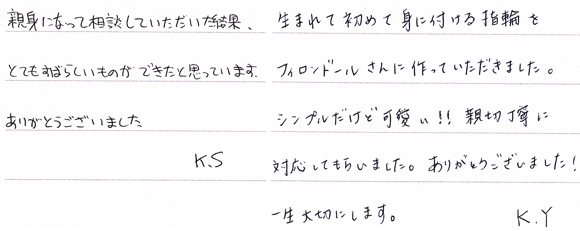 親身になって相談していただいた結果、
とてもすばらしいものができたと思っています.
ありがとうございました
K.S
生まれて初めて身に付ける指輪を
フィロンドールさんに作っていただきました。
シンプルだけど可愛い!! 親切丁寧に
対応してもらいました。ありがとうございました!
一生大切にします。
K.Y